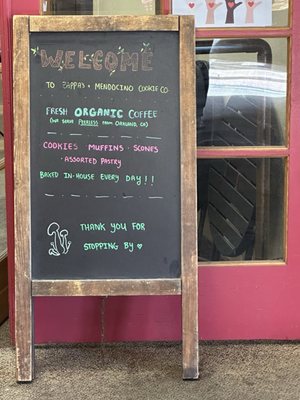 WELCOME
TO ZAPPA'S & MENDOCINO COOKIE CO
FRESH ORGANIC COFFEE
(WE SERVE PEERLESS FROM OAKLAND, CA)
COOKIES · MUFFINS · SCONES
· ASSORTED PASTRY
BAKED IN-HOUSE EVERY DAY!!
THANK YOU FOR
STOPPING BY